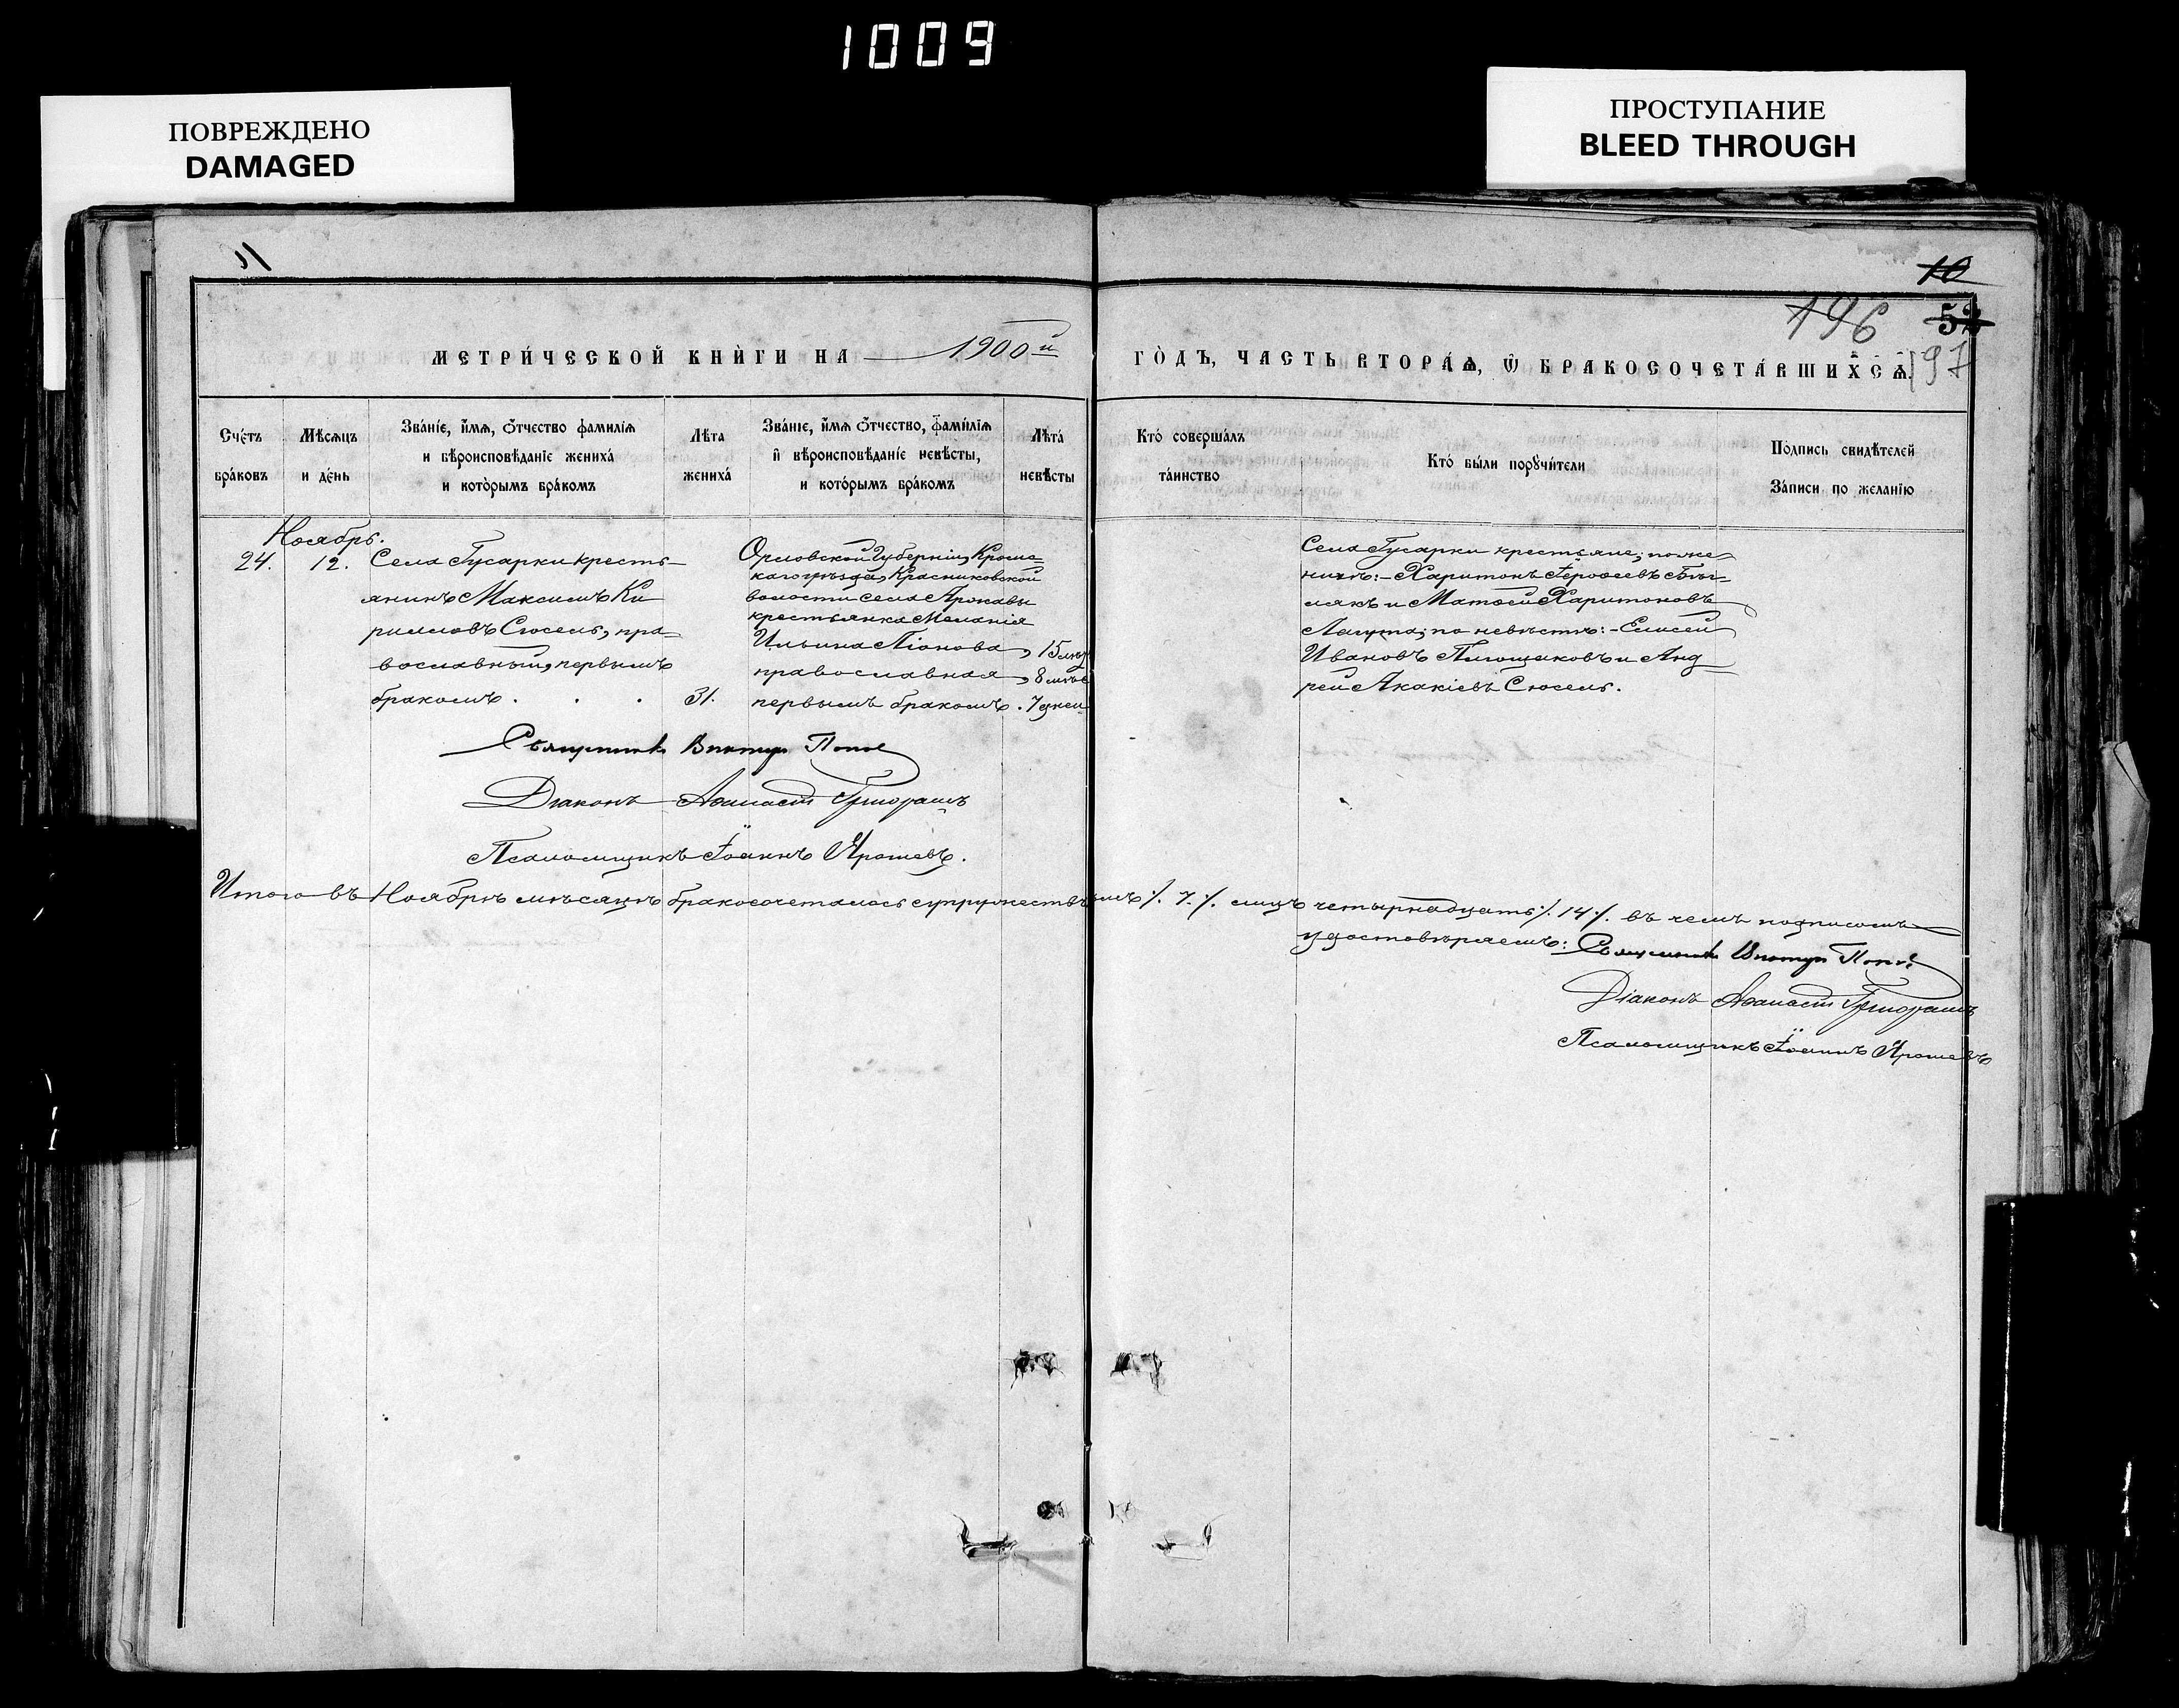 1009
ПОВРЕЖДЕНО
DAMAGED
ПРОСТУПАНИЕ
BLEED THROUGH
11
10
196
52
197
МЕТРИ́ЧЕСКОЙ КНИ́ГИ НА 1900й
ГО́ДЪ, ЧАСТЬ ВТОРА́Ѧ, Ѿ БРАКОСОЧЕТА́ВШИХСѦ.
Сче́тъ бра́ковъ
Мѣсѧцъ и де́нь
Зва́ніе, и́мѧ, ѻтчество фамилїѧ
и вѣроисповѣданіе жениха́
и кото́рымъ бра́комъ
Лѣта жениха́
Зва́ніе, и́мѧ ѻтчество, фами́лїѧ
и вѣроисповѣданіе невѣсты,
и кото́рымъ бра́комъ
Лѣта́ невѣсты
Кто́ соверша́лъ та́инство
Кто́ бы́ли порꙋчи́тели
По́дпись свидѣтелей
За́писи по желанїю
Ноябрь.
24.
12.
Села Гусарки кресть-
янинъ Максимъ Ки-
рилловъ Сюсель, пра-
вославный, первымъ
бракомъ . . .
31.
Орловской Губерніи, Кроме-
каго уѣзда, Красниковской
волости села
крестьянка Меланія
Ильина Ліонова,
православная,
первымъ бракомъ.
15 лѣтъ
8 мѣс
7 дней
Села Гусарки крестьяне; по же-
нихѣ:- Харитонъ Іерофеевъ
и Матѳей Харитоновъ
Лагута; по невѣстѣ:- Елисей
Ивановъ и Анд-
рей Акакіевъ Сюсель.
Священникъ Викторъ Попов
Діаконъ Аѳанасій Григорашъ
Псаломщикъ Іоаннъ Ярошевъ.
Итого въ Ноябрѣ мѣсяцѣ бракосочеталось супружествъ 7. лицъ четырнадцать 14. въ чемъ подписомъ
удостовѣряемъ: Священникъ Викторъ Попов
Діаконъ Аѳанасій Григорашъ
Псаломщикъ Іоаннъ Ярошевъ